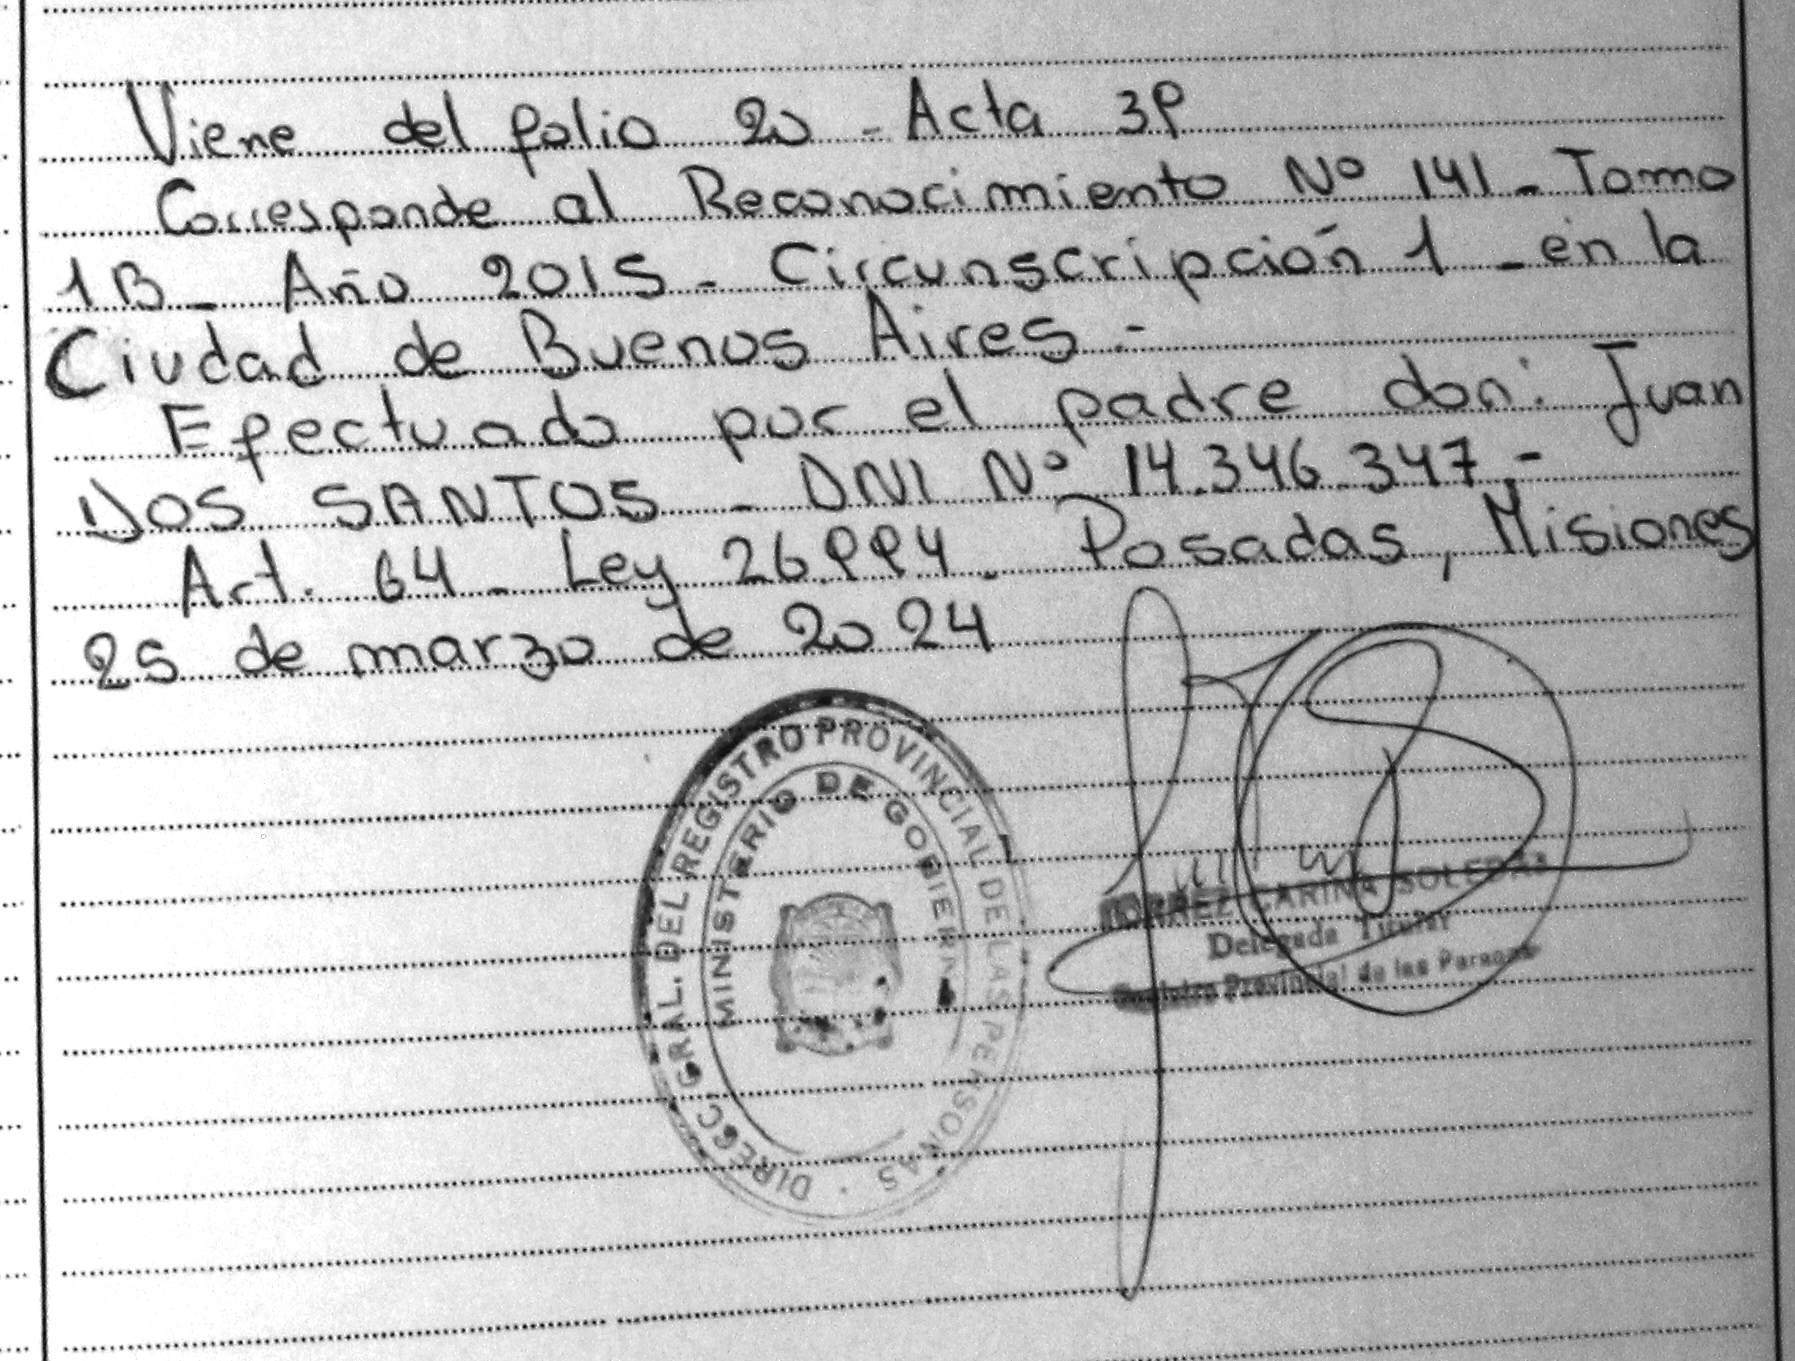 Viene del folio 20 - Acta 39
Corresponde al Reconocimiento Nº 141 - Tomo
1B - Año 2015 - Circunscripción 1 - en la
Ciudad de Buenos Aires.-
Efectuado por el padre don: Juan
DOS SANTOS - DNI Nº 14.346.347.-
Art. 64 - Ley 26.994. Posadas, Misiones
25 de marzo de 2024
DIRECC. GRAL. DEL REGISTRO PROVINCIAL DE LAS PERSONAS
MINISTERIO DE GOBIERNO
CARINA SOLEDAD
Delegada Titular
Registro Provincial de las Personas